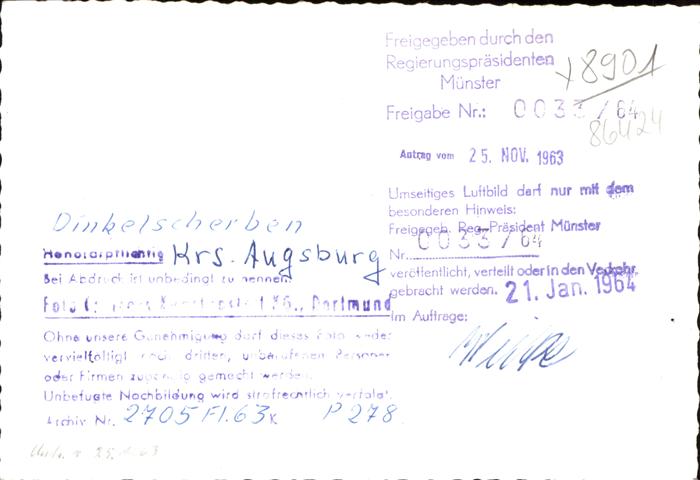 Freigegeben durch den
Regierungspräsidenten
Münster
x8901
Freigabe Nr.: 0033/64
86424
Antrag vom 25. NOV. 1963
Umseitiges Luftbild darf nur mit dem
besonderen Hinweis:
Freigegeb. Reg.-Präsident Münster
Nr. 0033/64
veröffentlicht, verteilt oder in den Verkehr
gebracht werden. 21. Jan. 1964
Im Auftrage:
Dinkelscherben
Honorarpflichtig Krs. Augsburg
Bei Abdruck ist unbedingt zu nennen:
Foto KG., Dortmund
Ohne unsere Genehmigung darf dieses Foto weder
vervielfältigt noch dritten, unberufenen Personen
oder Firmen zugängig gemacht werden.
Unbefugte Nachbildung wird strafrechtlich verfolgt.
Archiv Nr. 2705 Fl. 63 K P 278